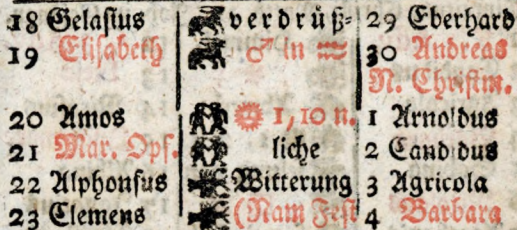 18 Gelasius verdrüß= 29 Eberhard
19 Elisabeth ♂ in ♒ 30 Andreas
N. Christm.
20 Amos ☼ 1,10 n. 1 Arnoldus
21 Mar. Opf. liche 2 Candidus
22 Alphonsus Witterung 3 Agricola
23 Clemens (Nam Fest 4 Barbara